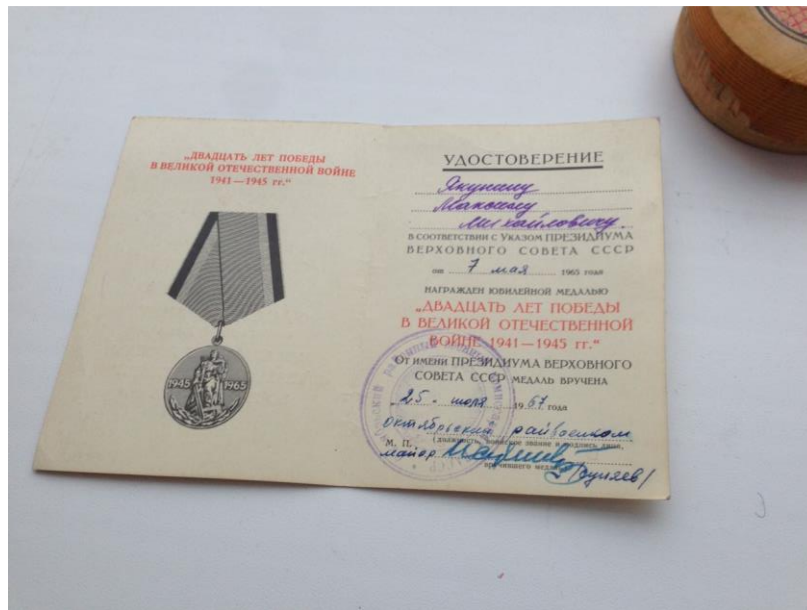 „ДВАДЦАТЬ ЛЕТ ПОБЕДЫ
В ВЕЛИКОЙ ОТЕЧЕСТВЕННОЙ ВОЙНЕ
1941—1945 гг.“
1945 1965
УДОСТОВЕРЕНИЕ
Якунину
Максиму
Михайловичу
В СООТВЕТСТВИИ С УКАЗОМ ПРЕЗИДИУМА
ВЕРХОВНОГО СОВЕТА СССР
от 7 мая 1965 года
НАГРАЖДЕН ЮБИЛЕЙНОЙ МЕДАЛЬЮ
„ДВАДЦАТЬ ЛЕТ ПОБЕДЫ
В ВЕЛИКОЙ ОТЕЧЕСТВЕННОЙ
ВОЙНЕ 1941—1945 гг.“
ОТ ИМЕНИ ПРЕЗИДИУМА ВЕРХОВНОГО
СОВЕТА СССР МЕДАЛЬ ВРУЧЕНА
25. 1967 года
Октябрьский райвоенком
М. П. (должность, воинское звание и подпись лица,
майор
вручившего медаль)